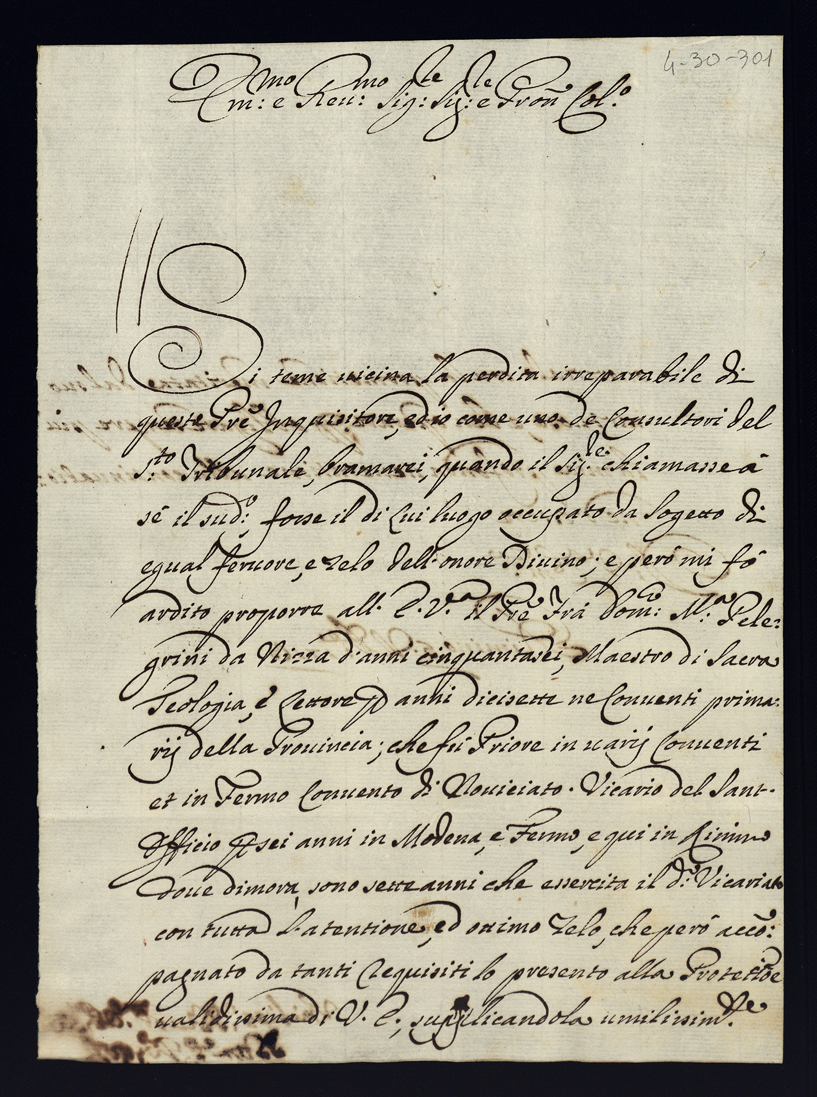 4-30-301
Em:mo e Reu:mo Sig:re Sig:re e Pron Col:o
Si teme uicina la perdita irreparabile di
queste Prē Inquisitore, ed io come uno de Consultori del
S:to Tribunale, bramarei, quando il Sig:re chiamasse à
sè il sud:o, fosse il di lui luogo occupato da sogetto di
egual feruore, e zelo dell'onore Diuino; e però mi fò
ardito proporre all' E. V:a il Prē Frà Dom:co M:a Pele-
grini da Nizza d'anni cinquantasei, Maestro di Sacra
Teologia, è Lettore p anni dicisette ne Conuenti prima-
rij della Prouincia; che fù Priore in uarij Conuenti
et in Fermo Conuento di Nouiciato. Vicario del Sant'
Officio p sei anni in Modena, e Fermo, e qui in Rimino
doue dimora, sono sette anni che essercita il d:o Vicariato
con tutta l'atentione, ed ottimo zelo, che però accō:
pagnato da tanti requisiti lo presento alla Protetiōe
ualidissima di V. E., suplicandola umilissim:te